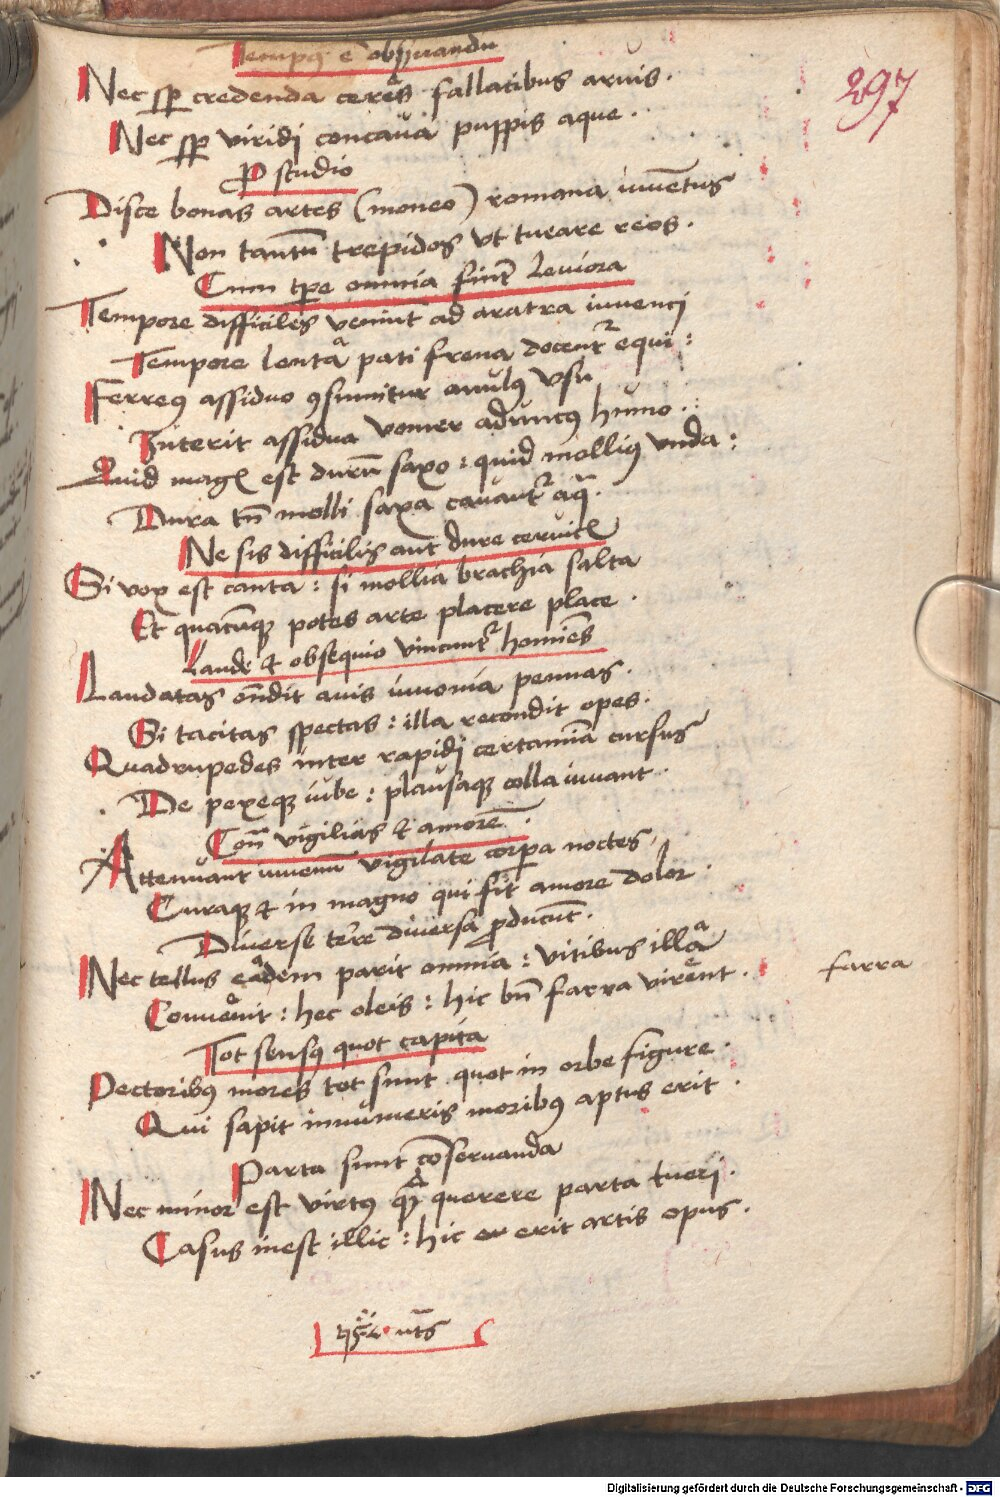 Tempꝰ ē obſẜuandū
297
Nec sꝑ credenda ceres fallatibus aruis.
Nec sꝑ viridi concaua puppis aque.
P studio
Disce bonas artes (moneo) romana iuuētus
Non tantū trepidos vt turare reos.
Cum tꝑe omnia fiūt leuiora
Tempore difficiles veniūt ad aratra iuuenci
Tempore lenta pati frena docentʳ equi:
Ferreꝰ assiduo ꝯsumitur anulꝰ vsu
Interit assidua vomer aduncꝰ humo.
Quid magꝭ est durū saxo: quid molliꝰ vnda:
Dura tn̄ molli saxa cauantʳ aq̄.
Ne sis difficilis aut dure ceruicꝭ
Si vox est canta: si mollia brachia salta
Et quacūqꝫ potes arte placere place.
Laude & obsequio vincuntʳ homīes
Laudatas on̄dit auis iunonia pennas.
Si tacitas spectas: illa recondit opes.
Quadrupedes inter rapidi certamīa cursus
De pexeqꝫ iube: plausaqꝫ colla iuuant.
Con̄ vigilias & amorē.
Attenuant iuuenū vigilate corꝑa noctes
Curaqꝫ & in magno qui fit amore dolor.
Diuerse terre diuersa ꝓducūt.
Nec tellus eadem parit omnia: vitibus illa
Conuenit: hec oleis: hic bn̄ farra virent.
farra
Tot sensꝰ quot capita
Pectoribꝰ mores tot sunt quot in orbe figure.
Qui sapit innumeris moribꝰ aptus erit.
Parta sunt cōseruanda
Nec minor est virtꝰ qꝫ querere parta tueri.
Casus inest illic: hic erit artis opus.
Digitalisierung gefördert durch die Deutsche Forschungsgemeinschaft - DFG